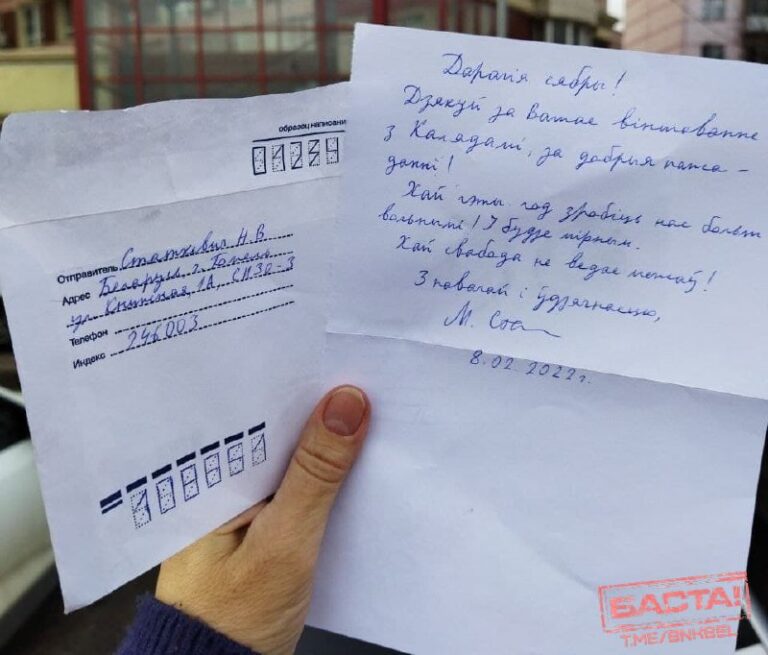 образец написания
Отправитель Статкевич Н.В.
Адрес Беларусь, г. Гомель
ул. Книжная 1А, СИЗО-3
Телефон
Индекс 246003
Дарагія сябры!
Дзякуй за Вашае віншаванне
з Калядамі, за добрыя пажа-
данні!
Хай гэты год зробіць нас больш
вольнымі! І будзе мірным.
Хай свабода не ведае межаў!
З павагай і ўдзячнасцю,
М. Ста
8.02.2022 г.
БАСТА!
T.ME/BNKBEL